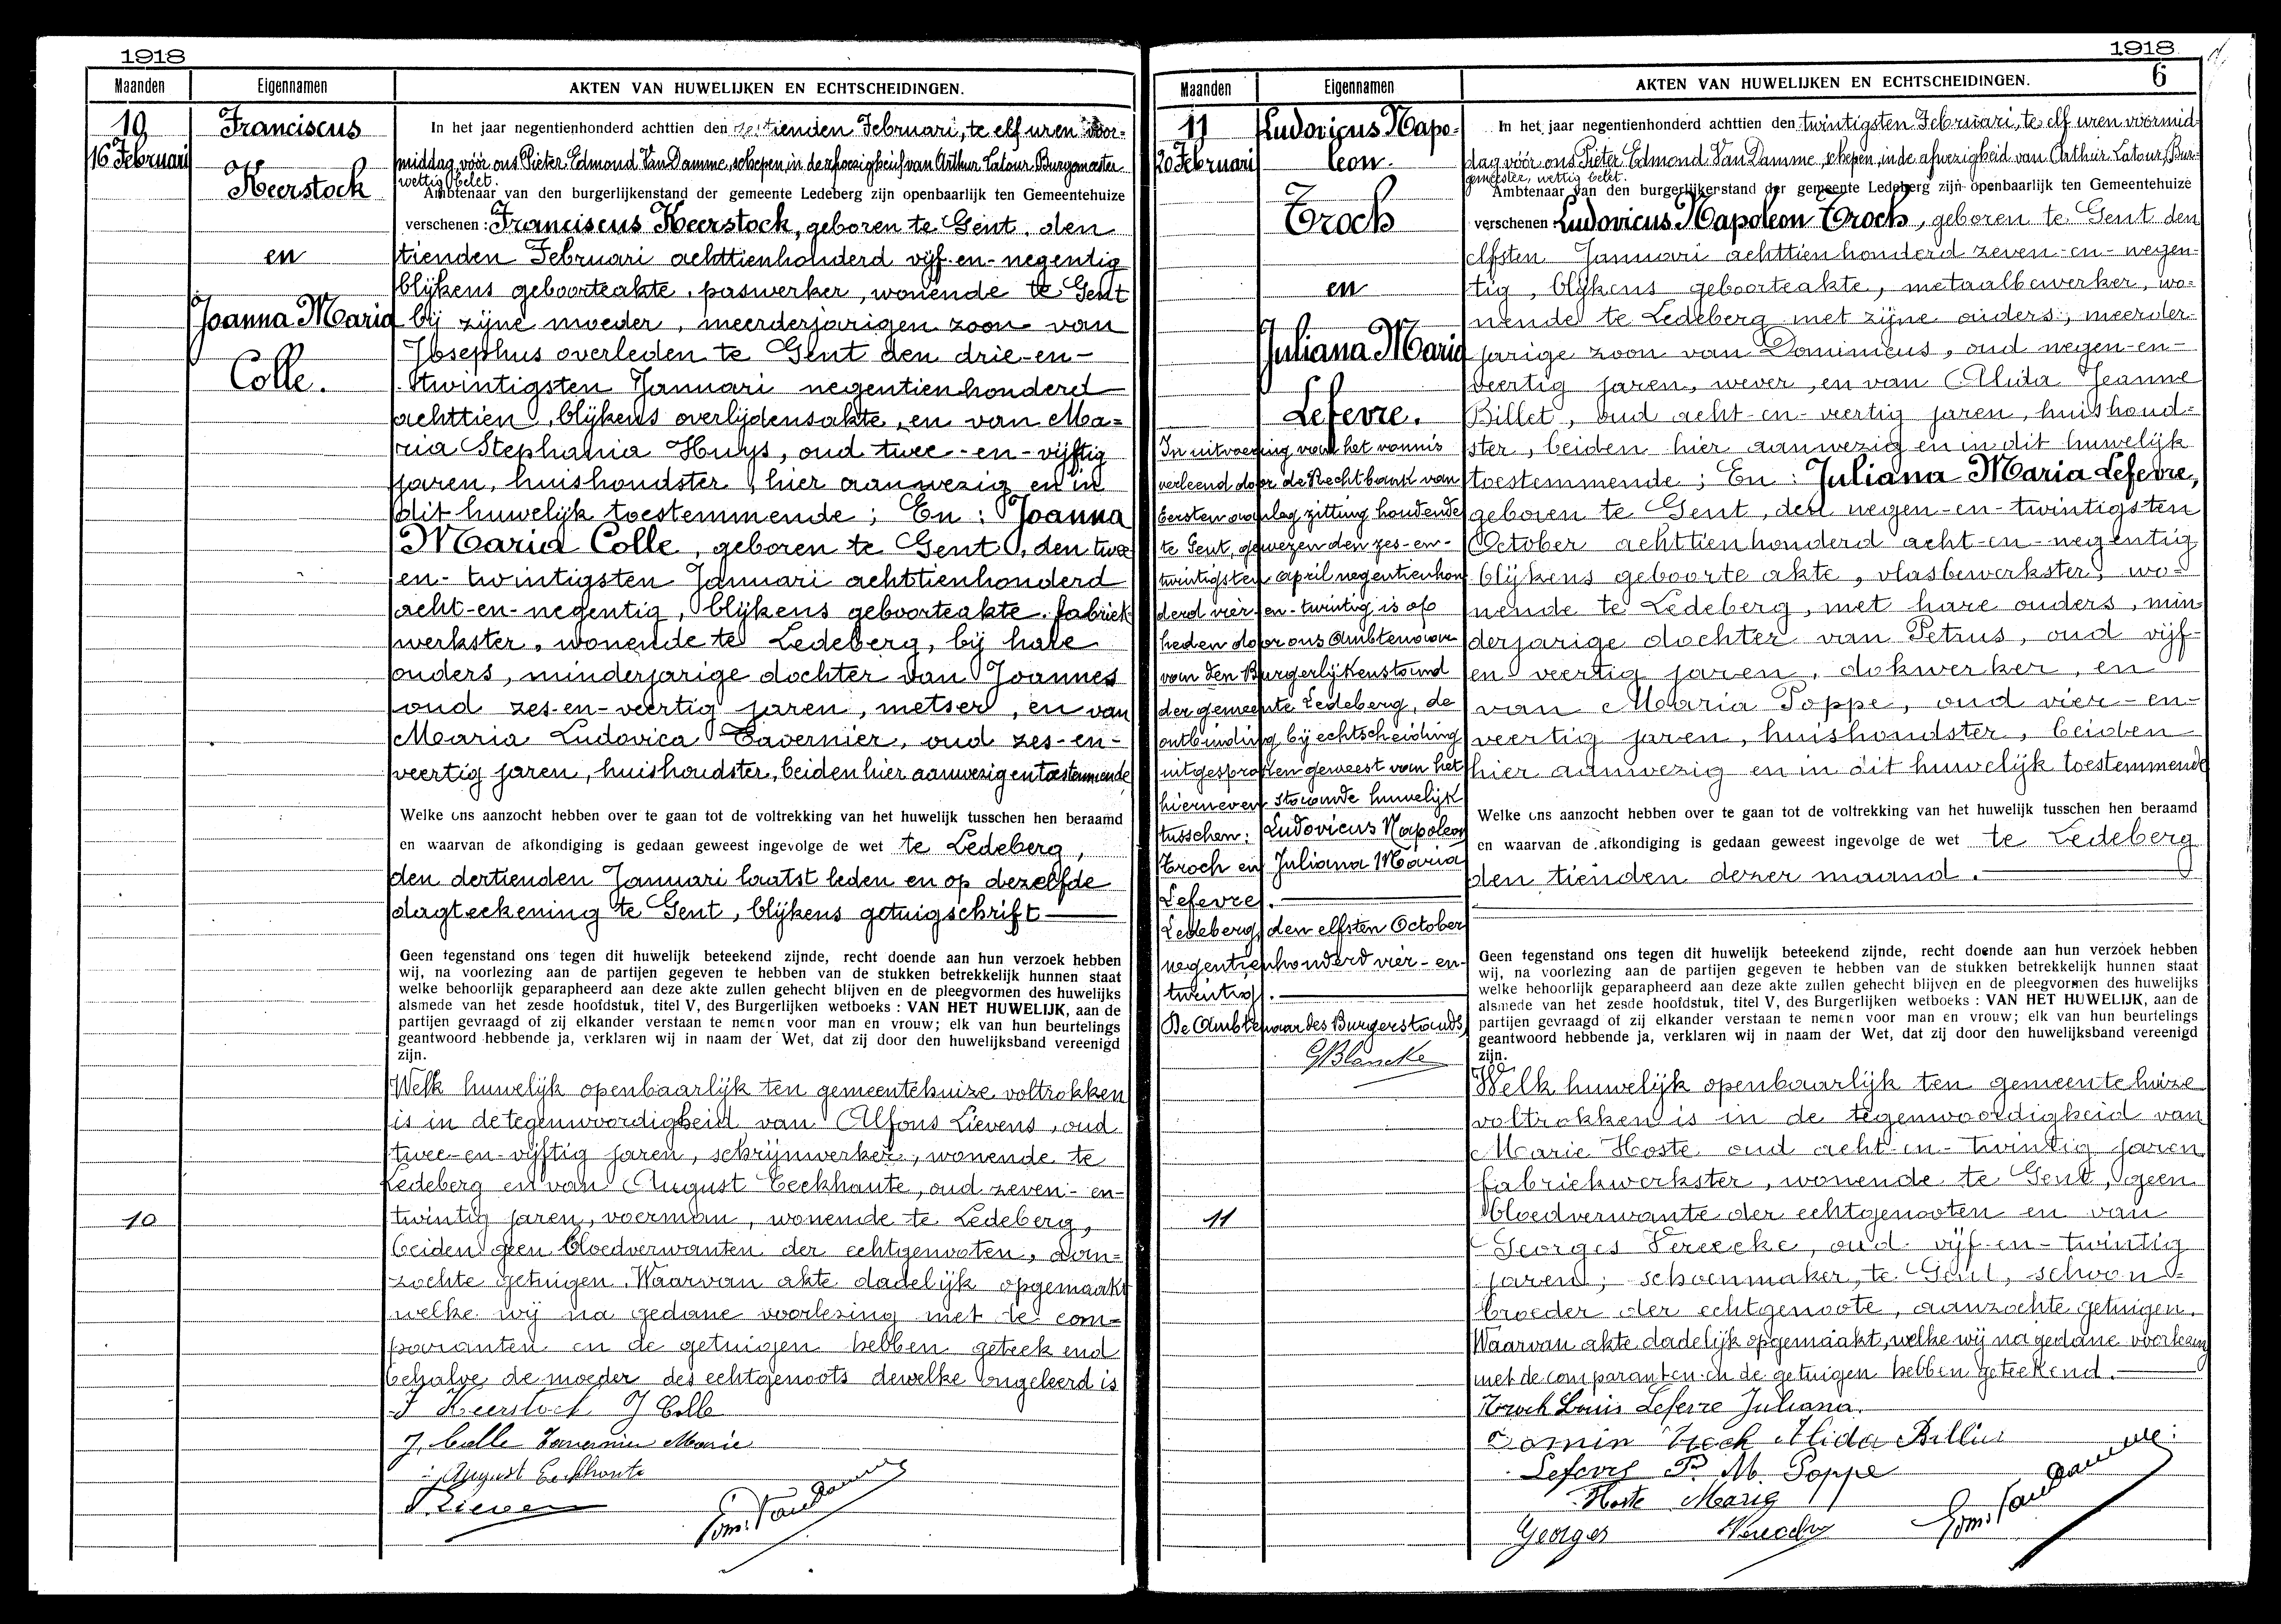 1918
Maanden Eigennamen AKTEN VAN HUWELIJKEN EN ECHTSCHEIDINGEN.
10
16 Februari
Franciscus
Keerstock
en
Joanna Maria
Colle.
10
In het jaar negentienhonderd achttien den zestienden Februari, te elf uren voor=
middag vóór ons Pieter Edmond Van Damme, schepen, in de afwezigheid van Arthur Latour, Burgemeester
wettig belet.
Ambtenaar van den burgerlijkenstand der gemeente Ledeberg zijn openbaarlijk ten Gemeentehuize
verschenen: Franciscus Keerstock, geboren te Gent, den
tienden Februari achttienhonderd vijf-en-negentig
blijkens geboorteakte, paswerker, wonende te Gent
bij zijne moeder, meerderjarigen zoon van
Josephus overleden te Gent den drie-en-
twintigsten Januari negentienhonderd
achttien, blijkens overlijdensakte, en van Ma=
ria Stephania Huys, oud twee-en-vijftig
jaren, huishoudster, hier aanwezig en in
dit huwelijk toestemmende; En: Joanna
Maria Colle, geboren te Gent, den twee
en-twintigsten Januari achttienhonderd
acht-en-negentig, blijkens geboorteakte, fabriek
werkster, wonende te Ledeberg, bij hare
ouders, minderjarige dochter van Joannes
oud zes-en-veertig jaren, metser, en van
Maria Ludovica Tavernier, oud zes-en-
veertig jaren, huishoudster, beiden hier aanwezig en toestemmende
Welke ons aanzocht hebben over te gaan tot de voltrekking van het huwelijk tusschen hen beraamd
en waarvan de afkondiging is gedaan geweest ingevolge de wet te Ledeberg,
den dertienden Januari laatst leden en op dezelfde
dagteekening te Gent, blijkens getuigschrift
Geen tegenstand ons tegen dit huwelijk beteekend zijnde, recht doende aan hun verzoek hebben
wij, na voorlezing aan de partijen gegeven te hebben van de stukken betrekkelijk hunnen staat
welke behoorlijk geparapheerd aan deze akte zullen gehecht blijven en de pleegvormen des huwelijks
alsmede van het zesde hoofdstuk, titel V, des Burgerlijken wetboeks: VAN HET HUWELIJK, aan de
partijen gevraagd of zij elkander verstaan te nemen voor man en vrouw; elk van hun beurtelings
geantwoord hebbende ja, verklaren wij in naam der Wet, dat zij door den huwelijksband vereenigd
zijn.
Welk huwelijk openbaarlijk ten gemeentehuize voltrokken
is in de tegenwoordigheid van Alfons Lievens, oud
twee-en-vijftig jaren, schrijnwerker, wonende te
Ledeberg en van August Eeckhaute, oud zeven-en-
twintig jaren, voerman, wonende te Ledeberg,
beiden geen bloedverwanten der echtgenooten, aan=
zochte getuigen. Waarvan akte dadelijk opgemaakt
welke wij na gedane voorlezing met de com=
paranten en de getuigen hebben geteekend
behalve de moeder des echtgenoots dewelke ongeleerd is
F Keerstock J Colle
J. Colle Tavernier Marie
August Eeckhaute
A Lievens
Edm. Van Damme
1918
6
Maanden Eigennamen AKTEN VAN HUWELIJKEN EN ECHTSCHEIDINGEN.
11
20 Februari
Ludovicus Napo=
leon.
Troch
en
Juliana Maria
Lefevre.
In uitvoering van het vonnis
verleend door de Rechtbank van
Eersten aanslag zitting houdende
te Gent, gewezen den zes-en-
twintigsten april negentienhon
derd vier-en-twintig is op
heden door ons Ambtenaar
van den Burgerlijkenstand
der gemeente Ledeberg, de
ontbinding bij echtscheiding
uitgesproken geweest van het
hierneven staande huwelijk
tusschen: Ludovicus Napoleon
Troch en Juliana Maria
Lefevre.
Ledeberg, den elfsten October
negentienhonderd vier-en-
twintig.
De Ambtenaar des Burgerstands,
GBlancke
11
In het jaar negentienhonderd achttien den twintigsten Februari, te elf uren voormid=
dag vóór ons Pieter Edmond Van Damme, schepen, in de afwezigheid van Arthur Latour, Bur=
gemeester, wettig belet.
Ambtenaar van den burgerlijkenstand der gemeente Ledeberg zijn openbaarlijk ten Gemeentehuize
verschenen: Ludovicus Napoleon Troch, geboren te Gent den
elfsten Januari achttienhonderd zeven-en-negen=
tig, blijkens geboorteakte, metaalbewerker, wo=
nende te Ledeberg met zijne ouders, meerder=
jarige zoon van Dominicus, oud negen-en-
veertig jaren, wever, en van Alida Jeanne
Billet, oud acht-en-veertig jaren, huishoud=
ster, beiden hier aanwezig en in dit huwelijk
toestemmende; En: Juliana Maria Lefevre,
geboren te Gent, den negen-en-twintigsten
October achttienhonderd acht-en-negentig
blijkens geboorte akte, vlasbewerkster, wo=
nende te Ledeberg, met hare ouders, min
derjarige dochter van Petrus, oud vijf-
en veertig jaren, dokwerker, en
van Maria Poppe, oud vier-en-
veertig jaren, huishoudster, beiden
hier aanwezig en in dit huwelijk toestemmende
Welke ons aanzocht hebben over te gaan tot de voltrekking van het huwelijk tusschen hen beraamd
en waarvan de afkondiging is gedaan geweest ingevolge de wet te Ledeberg
den tienden dezer maand.
Geen tegenstand ons tegen dit huwelijk beteekend zijnde, recht doende aan hun verzoek hebben
wij, na voorlezing aan de partijen gegeven te hebben van de stukken betrekkelijk hunnen staat
welke behoorlijk geparapheerd aan deze akte zullen gehecht blijven en de pleegvormen des huwelijks
alsmede van het zesde hoofdstuk, titel V, des Burgerlijken wetboeks: VAN HET HUWELIJK, aan de
partijen gevraagd of zij elkander verstaan te nemen voor man en vrouw; elk van hun beurtelings
geantwoord hebbende ja, verklaren wij in naam der Wet, dat zij door den huwelijksband vereenigd
zijn.
Welk huwelijk openbaarlijk ten gemeentehuize
voltrokken is in de tegenwoordigheid van
Marie Hoste oud acht-en-twintig jaren
fabriekwerkster, wonende te Gent, geen
bloedverwante der echtgenooten en van
Georges Vereecke, oud vijf-en-twintig
jaren, schoenmaker, te Gent, schoon=
broeder der echtgenoote, aanzochte getuigen.
Waarvan akte dadelijk opgemaakt, welke wij na gedane voorlezing
met de comparanten en de getuigen hebben geteekend.
Troch Louis Lefevre Juliana.
Domin Troch Alida Billiet
Lefevre P. M. Poppe
Hoste Marie
Georges Vereecke
Edm. Van Damme